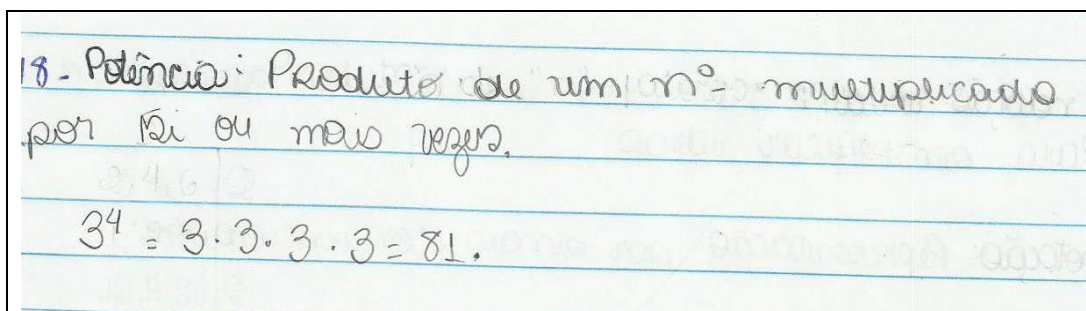 18- Potência: Produto de um nº multiplicado
por si ou mais vezes.
3⁴ = 3.3.3.3 = 81.